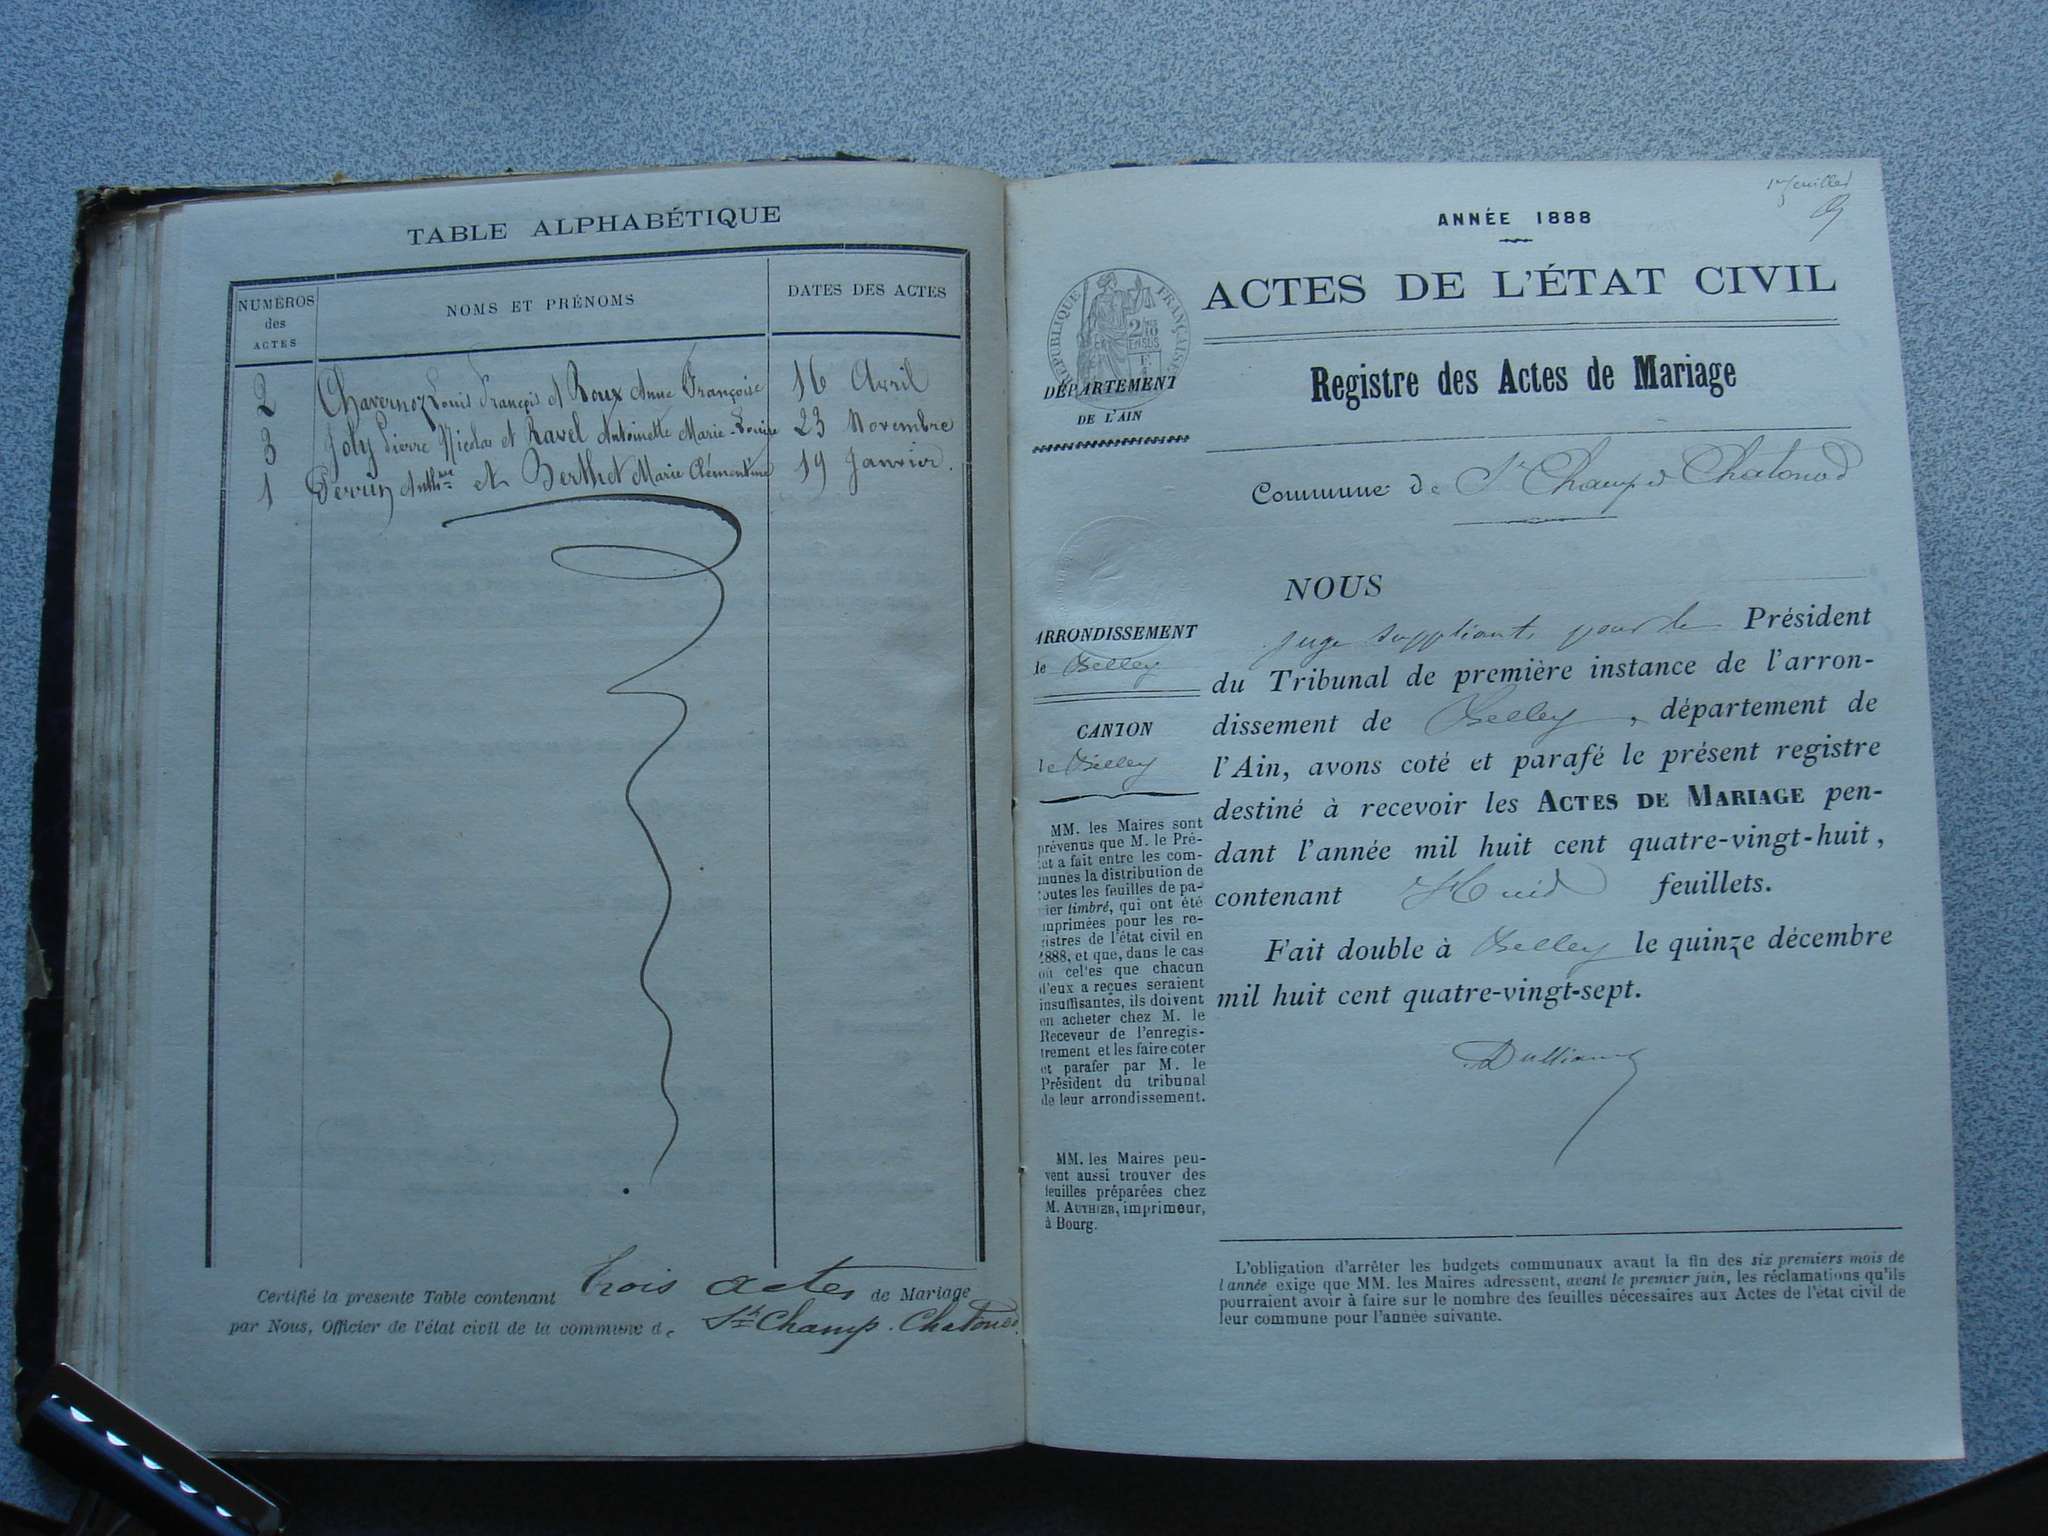 TABLE ALPHABÉTIQUE
NUMÉROS des ACTES
NOMS ET PRÉNOMS
DATES DES ACTES
2 Chavernoz Louis François et Roux Anne Françoise 16 Avril
3 Joly Pierre Nicolas et Ravel Antoinette Marie-Louise 23 Novembre
1 Perrin Anthme et Berthet Marie Clémentine 19 Janvier.
Certifié la présente Table contenant trois actes de Mariage
par Nous, Officier de l'état civil de la commune de St Champ-Chatonod.
1er feuillet
ANNÉE 1888
ACTES DE L'ÉTAT CIVIL
RÉPUBLIQUE FRANÇAISE
DÉPARTEMENT
DE L'AIN
Registre des Actes de Mariage
Commune de St Champ et Chatonod
ARRONDISSEMENT
de Belley
CANTON
de Belley
MM. les Maires sont
prévenus que M. le Pré-
fet a fait entre les com-
munes la distribution de
toutes les feuilles de pa-
pier timbré, qui ont été
imprimées pour les re-
gistres de l'état civil en
1888, et que, dans le cas
où celles que chacun
d'eux a reçues seraient
insuffisantes, ils doivent
en acheter chez M. le
Receveur de l'enregis-
trement et les faire coter
et parafer par M. le
Président du tribunal
de leur arrondissement.
MM. les Maires peu-
vent aussi trouver des
feuilles préparées chez
M. AUTHIER, imprimeur,
à Bourg.
NOUS
juge suppléant, pour le Président
du Tribunal de première instance de l'arron-
dissement de Belley, département de
l'Ain, avons coté et parafé le présent registre
destiné à recevoir les ACTES DE MARIAGE pen-
dant l'année mil huit cent quatre-vingt-huit,
contenant Huit feuillets.
Fait double à Belley le quinze décembre
mil huit cent quatre-vingt-sept.
L'obligation d'arrêter les budgets communaux avant la fin des six premiers mois de
l'année exige que MM. les Maires adressent, avant le premier juin, les réclamations qu'ils
pourraient avoir à faire sur le nombre des feuilles nécessaires aux Actes de l'état civil de
leur commune pour l'année suivante.